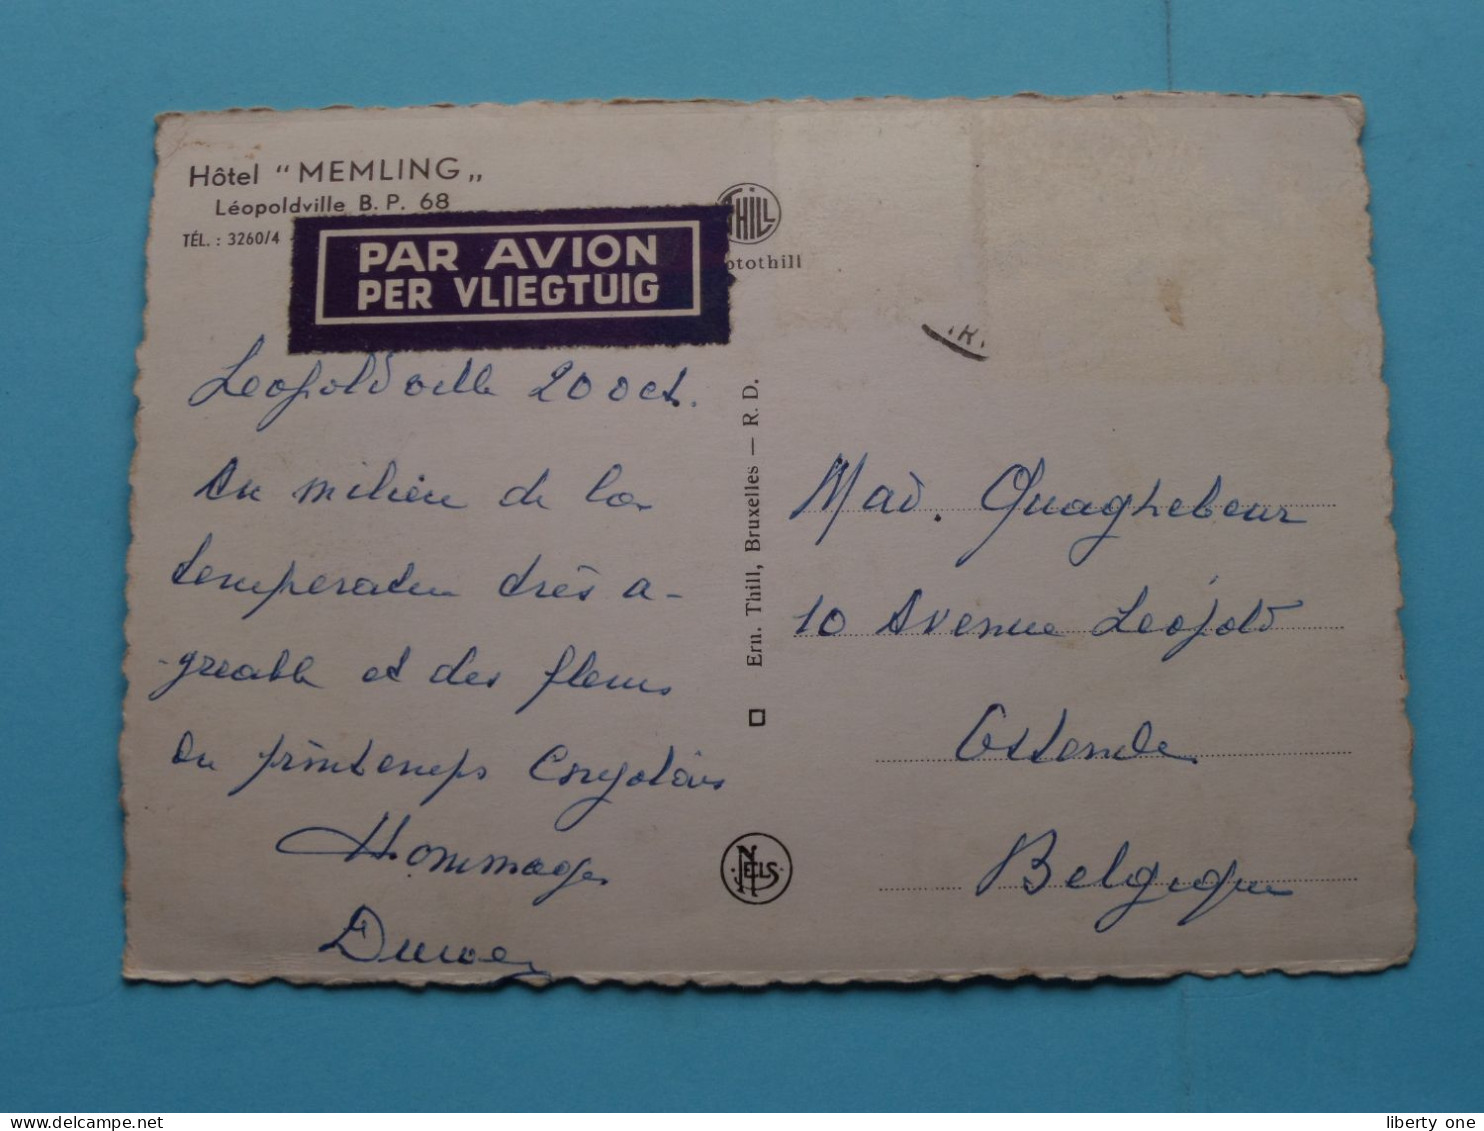 Hôtel "MEMLING"
Léopoldville B. P. 68
TÉL. : 3260/4
PAR AVION
PER VLIEGTUIG
THILL
ptothill
Leopoldville 20 oct.
Au milieu de la
temperature très a-
greable et des fleurs
du printemps Congolais
Hommages
Ern. Thill, Bruxelles — R. D.
NELS
Mad. Quaghebeur
10 Avenue Leopold
Ostende
Belgique
delcampe.net
liberty one